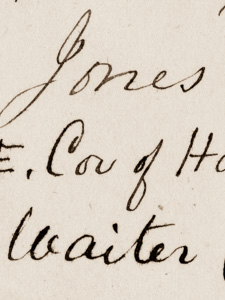 Jones
E. Cor of Ho
Waiter